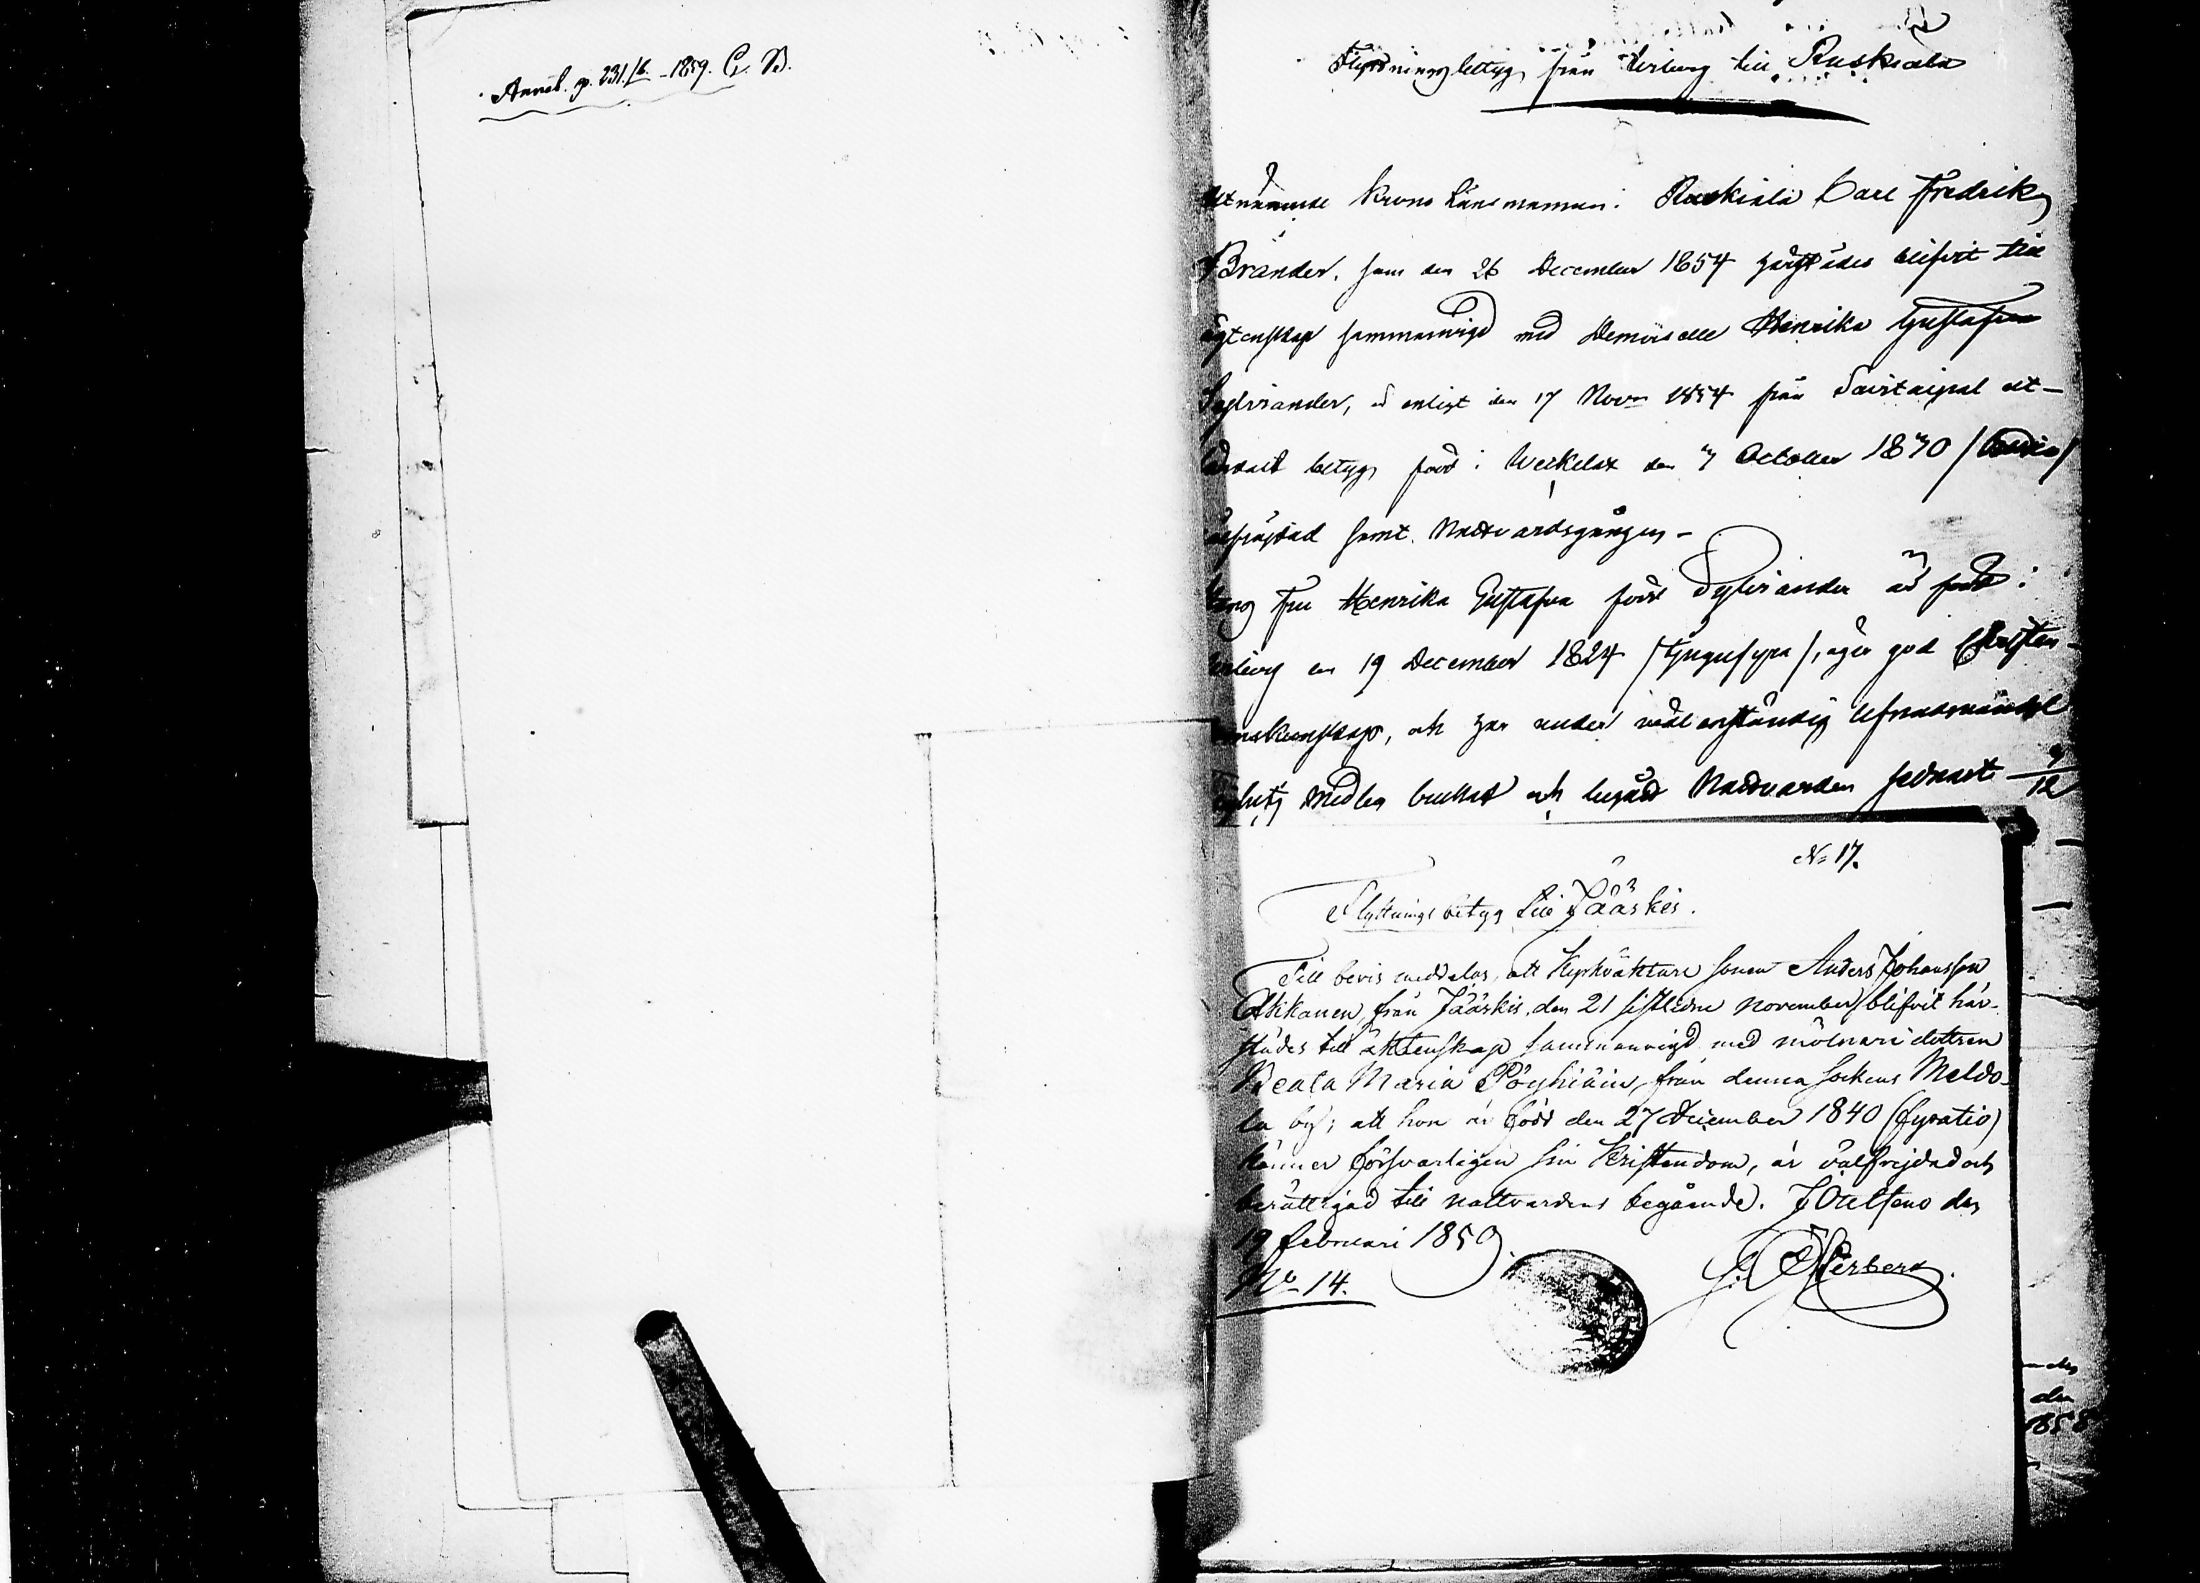 Annot. p. 231. 16/6 - 1859. C. B.
Flyttningsbetyg från Wiborg till Ruskiala
Utnämnde Krono Länsmannen i Ruskiala Carl Fredrik
Brander, som den 26 December 1854 härstädes blifvit till
ägtenskap sammanvigd med Demoiselle Henrika Gustafva
Sylvander, är enligt den 17 Nov 1854 från Savitaipal ut-
betyg född i Weckelax den 7 October 1830
samt Nattvardsgången -
Hans fru Henrika Gustafva född Sylvander är född i
Wiborg den 19 December 1824 /tjugufyra/, äger god Christen-
domskunskap, och har under välanständig lefnadsvandel
medlen brukat och begått Nattvarden sednast 9/12
No 17.
Flyttnings betyg till Jääskis.
Till bevis meddelas, att Kyrkväktare sonen Anders Johansson
Akkanen, från Jääskis, den 21 sistledne november blifvit här-
städes till äktenskap sammanvigd med mölnare dottren
Beata Maria Pöyhiäin, från denna sockens Meldo-
la by; att hon är född den 27 December 1840 (fyratio)
känner försvarligen sin Kristendom, är välfrejdad och
berättigad till nattvardens begående. J Outseno den
19 februari 1859.
No 14.
den
1858